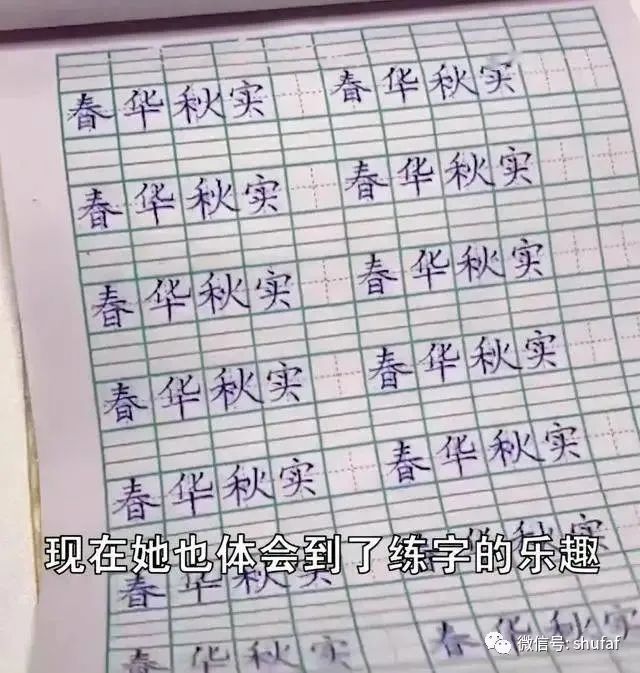 春华秋实 春华秋实
春华秋实 春华秋实
春华秋实 春华秋实
春华秋实 春华秋实
春华秋实 春华秋实
现在她也体会到了练字的乐趣
春华秋实 春华秋实
春华秋实 春华秋实
微信号: shufaf